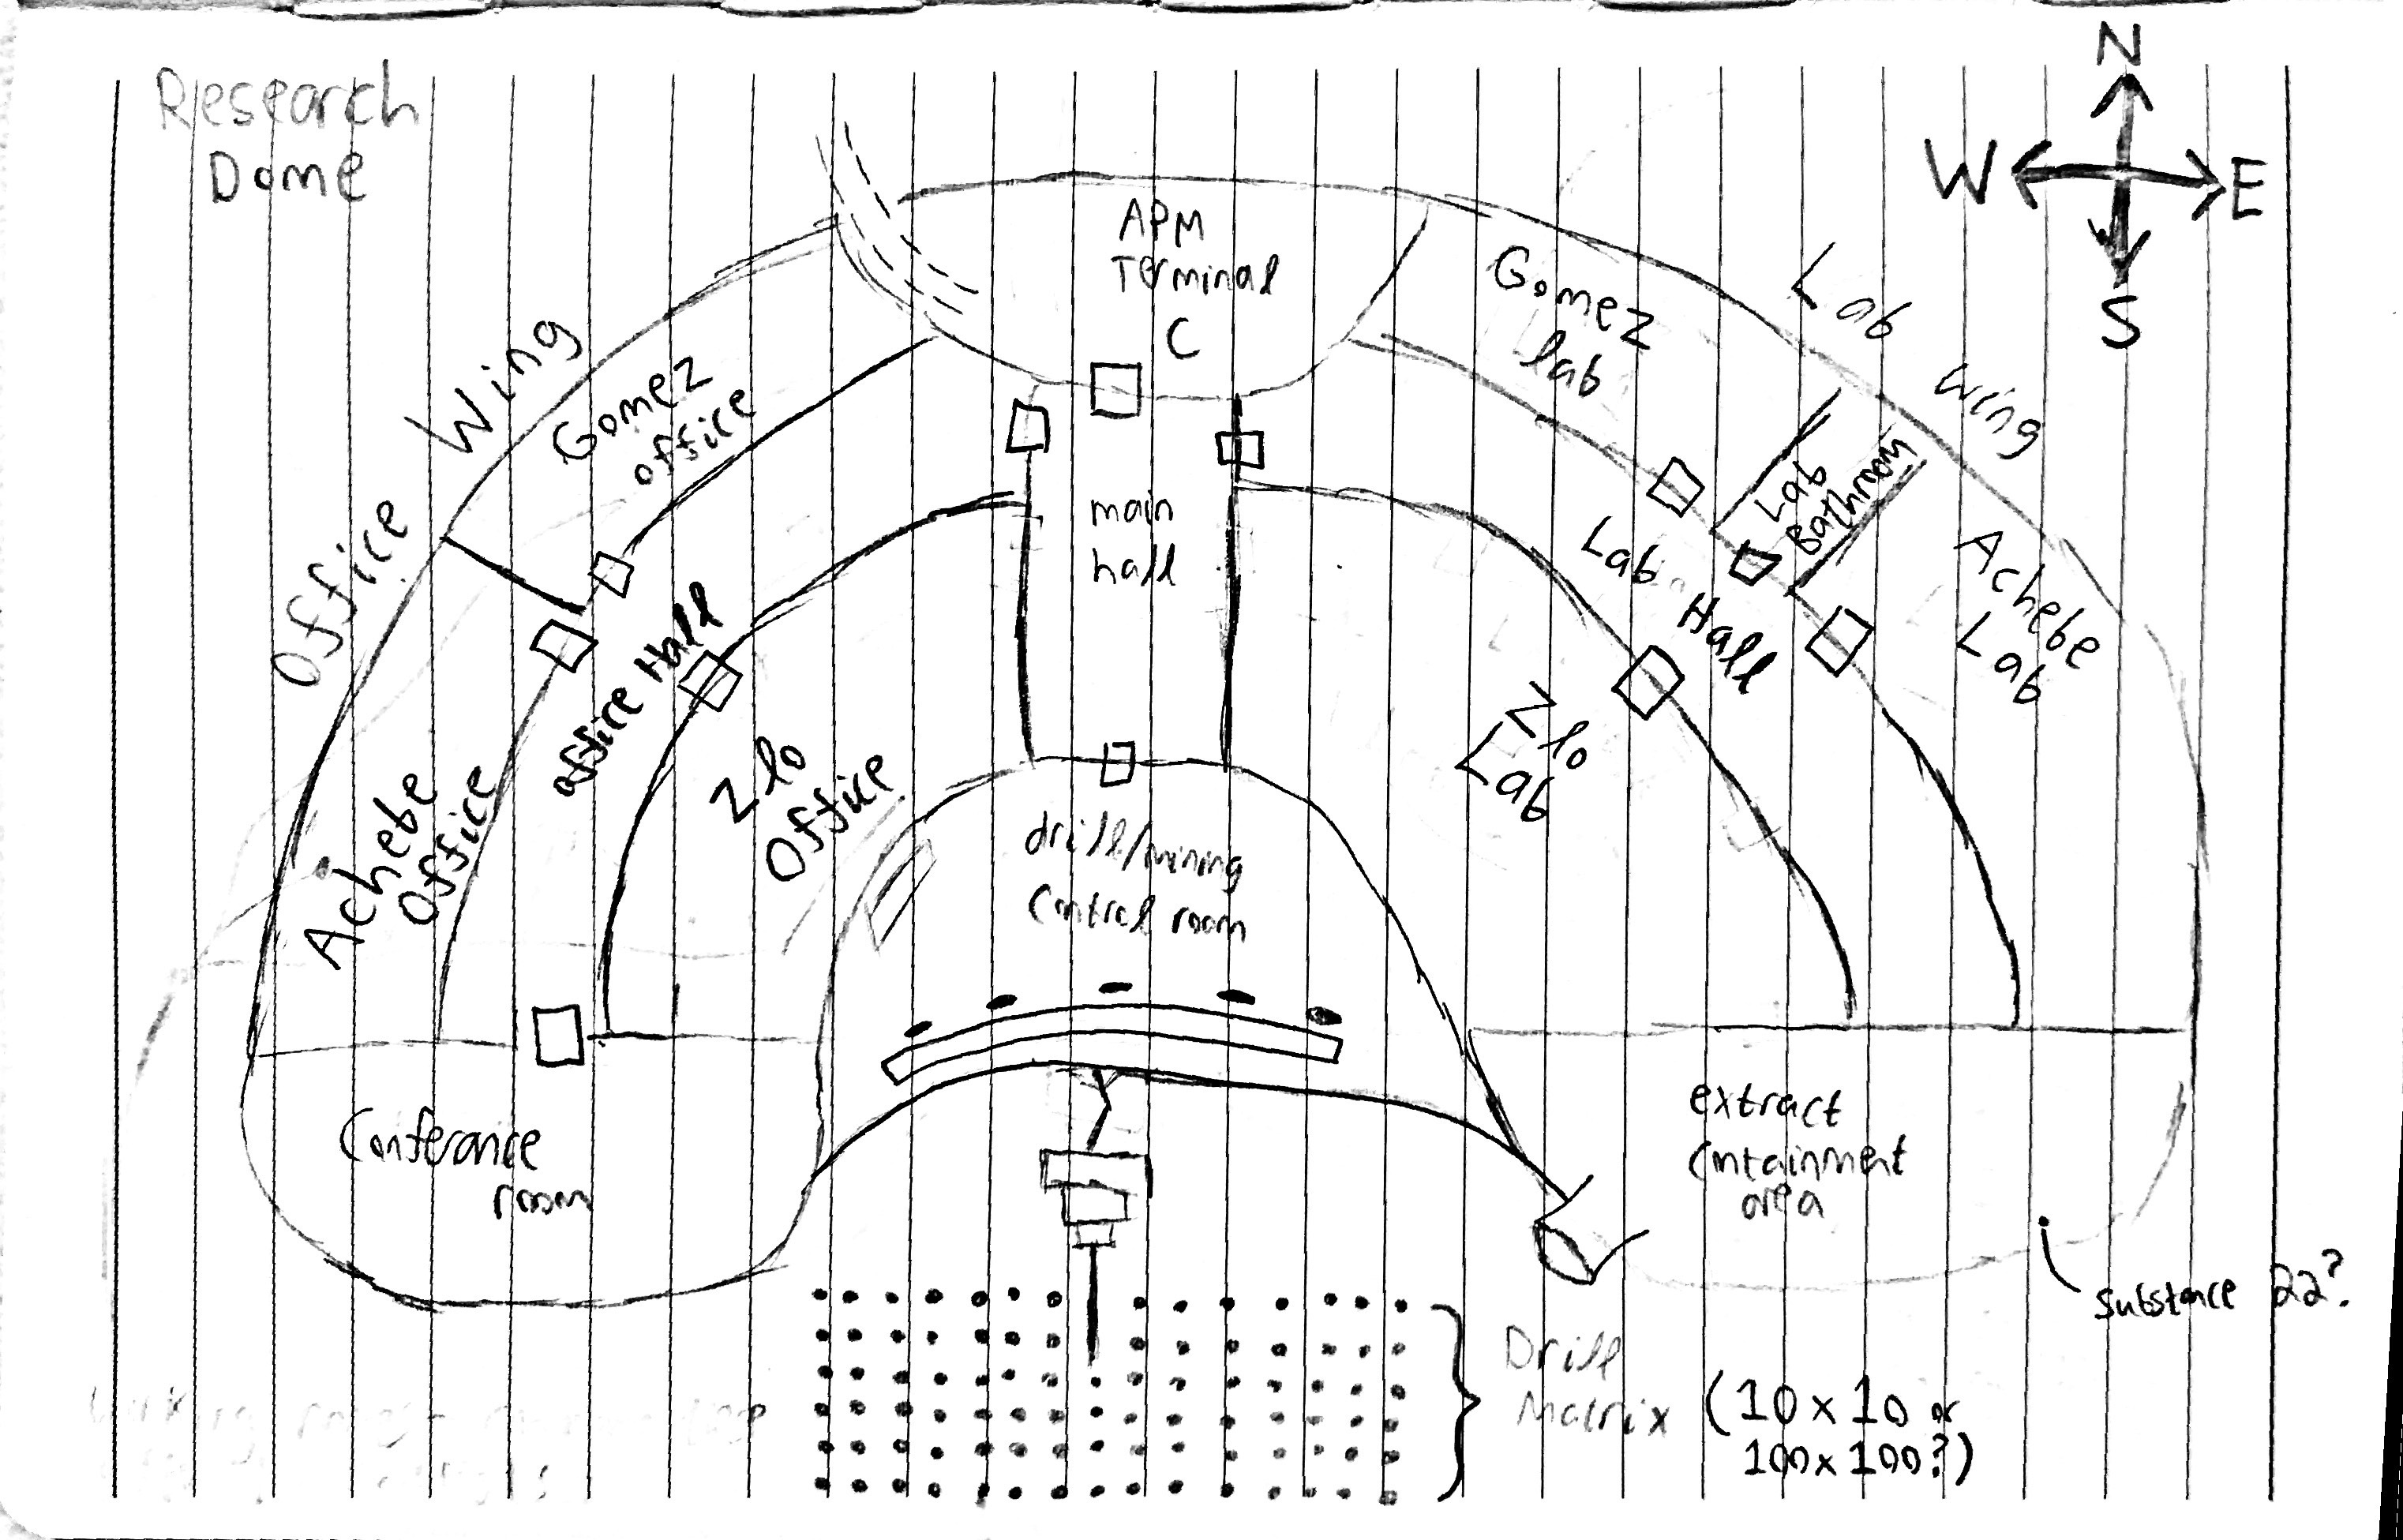 Research
Dome
N
W
E
S
APM
Terminal
C
Gomez
lab
Lab
Wing
Office
Wing
Gomez
office
main
hall
Lab
Bathroom
Lab
Hall
Achebe
Lab
office Hall
Zlo
Office
Zlo
Lab
Achebe
Office
drill/mining
control room
Conferance
room
extract
containment
area
substance 22?
Drill
Matrix
(10 x 10 or
100 x 100?)